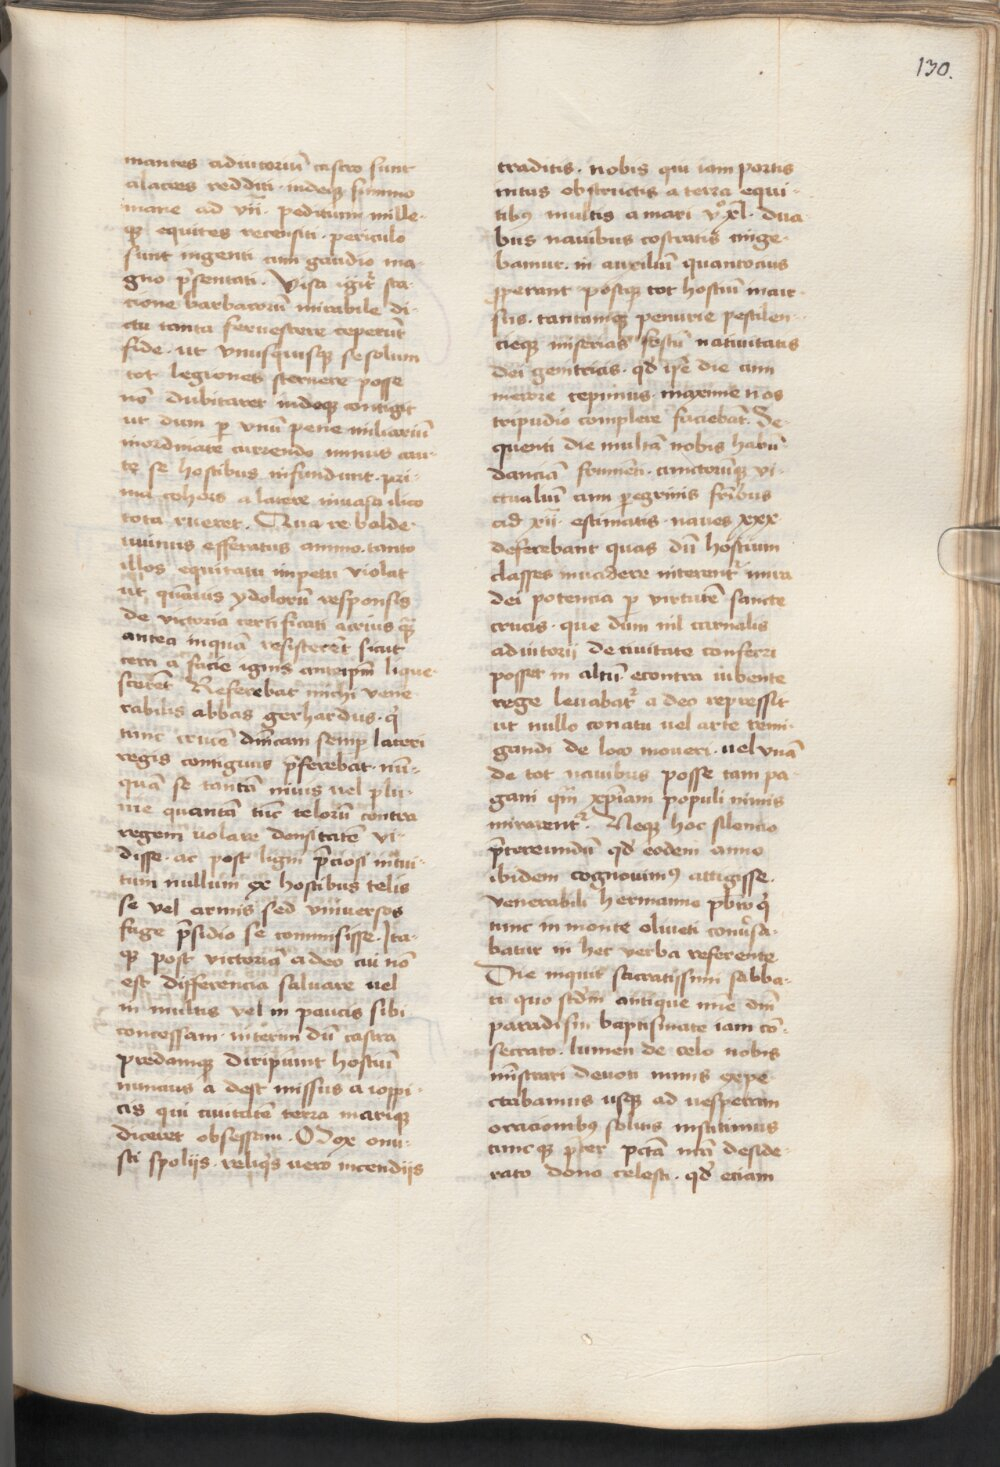 130.
mantes adiutoriū castro sunt
alacres redditi · indeqꝫ summo
mane ad vii̅ · peditum mille·
qꝫ equites recensiti · periculo
sunt ingenti cum gaudio ma-
gno p̄sentati. Visa igit̄ sta-
cione barbarorū mirabile di-
ctu tanta feruescere ceperūt
fide · ut vnusquisqꝫ se solum
tot legiones sternere posse
nō dubitaret indeqꝫ contigit
ut dum ꝑ vnū pene miliariū
inordinate currendo minus cau-
te se hostibus infundunt · pri-
ma cohors a latere inuasa ilico
tota rueret. Qua re balde-
winus efferatus animo · tanto
illos equitatu impetu violat
ut quāuis ydolorū responsis
de victoria certificati acrius qꝫ̄
antea inquā resisterēt sicut
cera a facie ignis anteip̄m lique-
scerēt Referebat michi vene-
rabilis abbas gerhardus · q̇
tunc crucē dn̄icam semꝑ lateri
regis contiguus p̄ferebat · nū-
quā se tantā niuis vel plu-
uie quantā tūc telorū contra
regem uolare densitatē vi-
disse · ac post ligni p̄ciosi intui-
tum nullum ex hostibus telis
se vel armis sed vniuersos
fuge p̄sidio se commisisse. Ita-
qꝫ post victoriā a deo cui nō
est differencia saluare uel
in multis vel in paucis sibi
concessam · interim dū castra
predamqꝫ diripiunt hostiū
nuncius a dest missus a ioppi-
cis qui ciuitatē terra mariqꝫ
diceret obsessam. Mox onu-
sti spolijs · reliq̄s uero incendijs
traditis · nobis qui iam portis
intus obstructis a terra equi-
tibꝰ multis a mari vº̄xl̄ · dua
bus nauibus costratis cinge-
bamur · in auxiliū quantocius
sperant · postqꝫ tot hostiū incur-
sus · tantamqꝫ penurie pestilen-
cieqꝫ miserias festū natiuitatis
dei genitricis · qd̄ ip̄e die cum
merore cepimus · maxime nos
tripudio complere faciebāt. Se-
quenti die multā nobis habū-
danciā frumēti · cunctorūqꝫ vi-
ctualiū cum ꝑegrinis fr̄ibus
ad xii̅ · estimatis · naues xxx
deferebant quas dū hostium
classes inuadere niterent̄ mira
dei potencia ꝑ virtutē sancte
crucis · que dum nil carnalis
adiutorij de ciuitate conferri
posset in altū econtra iubente
rege leuabat̄ a deo repressit
ut nullo conatu uel arte remi-
gandi de loco moueri · uel vnā
de tot nauibus posse tam pa-
gani qm̄ xp̄iam populi nimis
mirarent̄. Neqꝫ hoc silencio
p̄tereundū qd̄ eodem anno
ibidem cognouimꝰ attigisse ·
venerabili hermanno pb̄ro q̇
tunc in monte oliueti conūsa-
batur in hec verba referente
Die inquit sacratissimi sabba-
ti quo scd̄m antique mīe dm̄
paradisum baptismate iam cō-
secrato · lumen de celo nobis
mīstrari deuoti nimis expe-
ctabamus usqꝫ ad uesperam
oracionibꝰ solius institimus
tuncqꝫ p̄ter pctā nrā deside-
rato dono celesti · qd̄ etiam